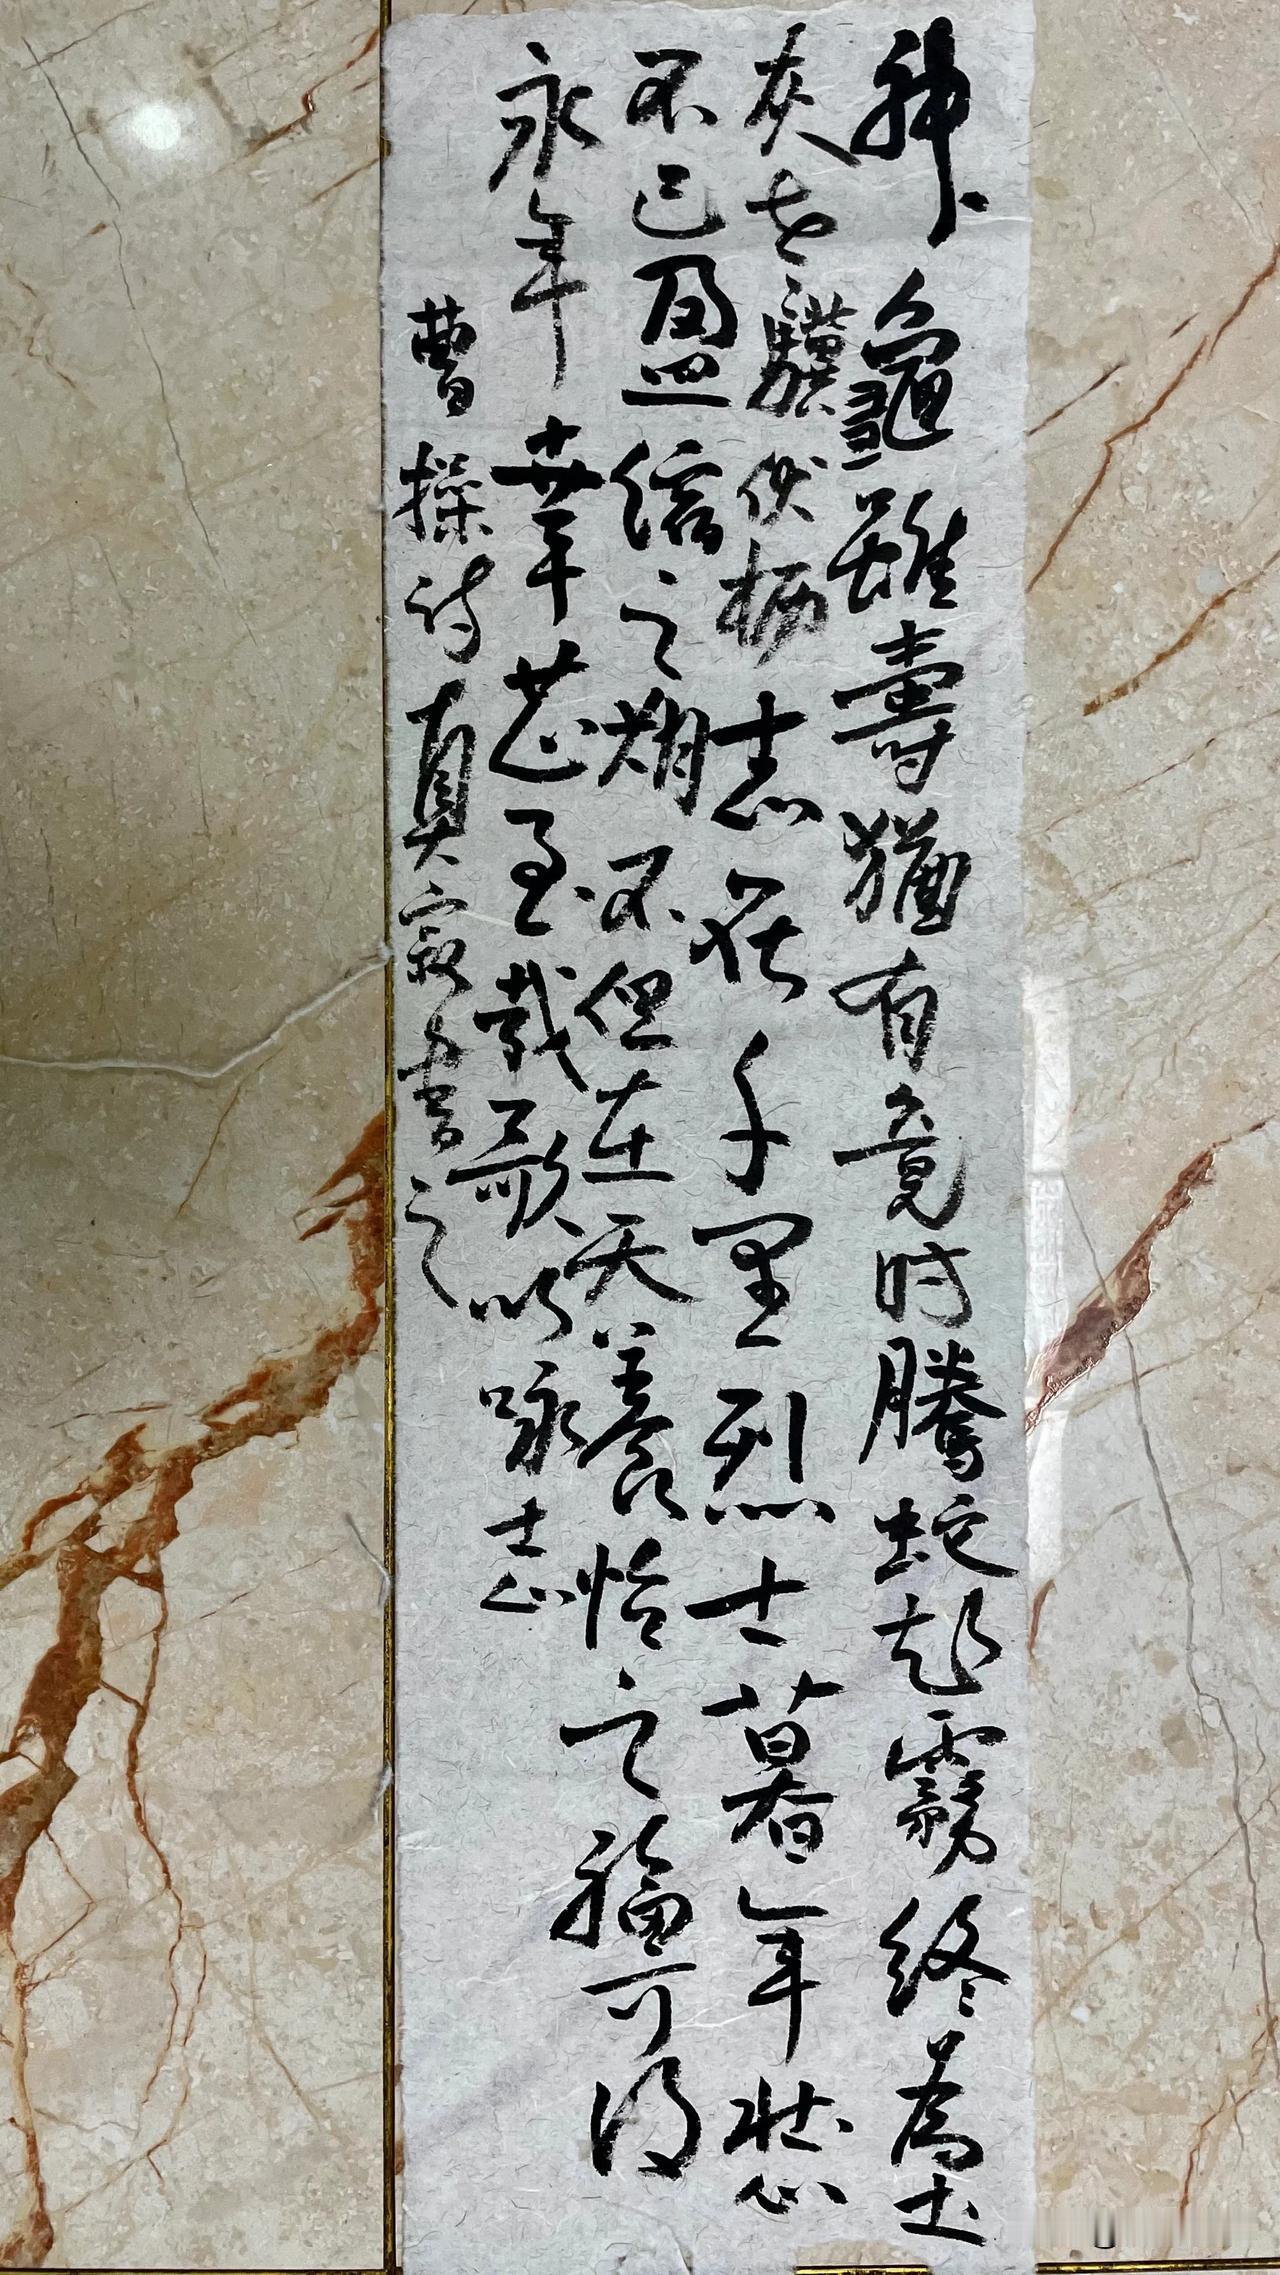 神龜雖壽猶有竟时騰蛇起霧終為土
灰老驥伏枥志在千里烈士暮年壯心
不已盈縮之期不但在天養怡之福可得
永年幸甚至哉歌以咏志
曹操诗真寂書之